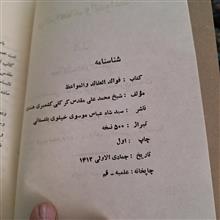 شناسنامه
کتاب : فوائد العقائد والمواعظ
مؤلف : شیخ محمد علی مقدس کرگانی کشمیری هندی
ناشر : سید شاه عباس موسوی خپلوی بلتستانی
تیراژ : ۵۰۰ نسخه
چاپ : اول
تاریخ : جمادی الاولی ۱۴۱۲
چاپخانه : علمیه - قم